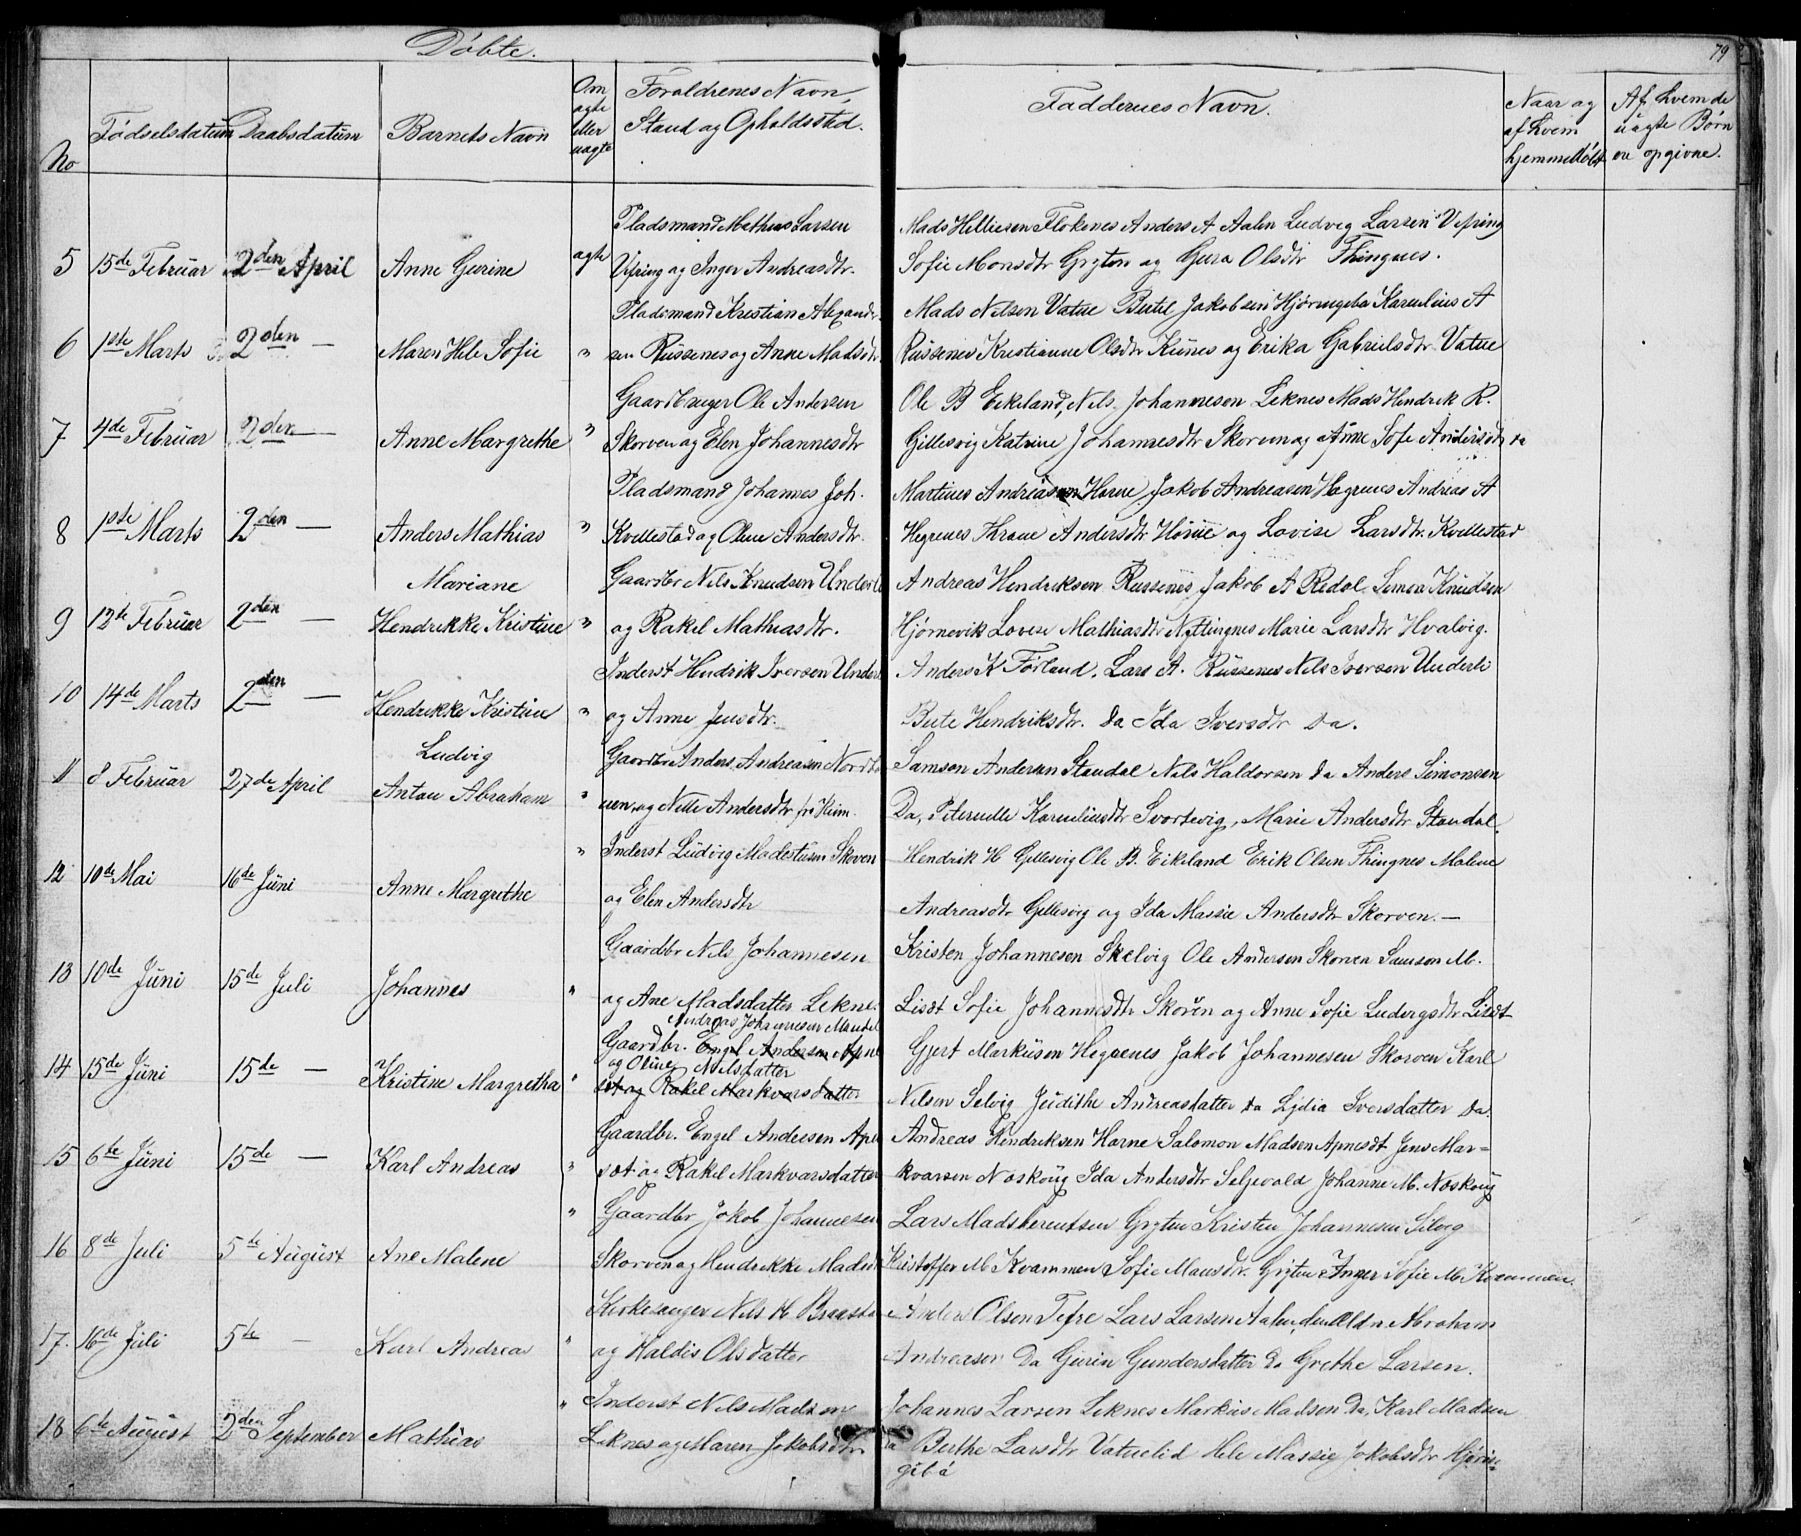 Døbte.
79
No
Fødselsdatum
Daabsdatum
Barnets Navn
Om ægte eller uægte
Forældrenes Navn, Stand og Opholdsted.
Faddernes Navn.
Naar og af hvem hjemmedøbt
Af hvem de uægte Børn ere opgivne.
Pladsmand Mathias Larsen Mads Helliesen Flokenes Anders A Aalen Ludvig Larsen Vefring
5 15de Februar 2den April Anne Gurine ægte Vefring og Inger Andreasdtr. Sofie Monsdtr Gryten og Gura Olsdtr Thingnes.
Pladsmand Kristian Alexander- Mads Nilsen Vatne Bertil Jakobsen Hjørnegebø Karnelius A
6 1ste Marts 2den — Maren Hele Sofie " sen Russenes og Anne Madsdtr Russenes Kristianne Olsdtr Kines og Erika Gabrielsdtr Vatne
Gaardbruger Ole Andersen Ole B Eikeland, Nils Johannesen Leknes Mads Hendrik R.
7 4de Februar 2den — Anne Margrethe " Skorven og Elen Johannesdtr Gillesvig Katrine Johannesdtr Skorven og Anne Sofi Andersdtr da
Pladsmand Johannes Joh. Martines Andreasen Horne Jakob Andreasen Hegrenes Andreas A
8 1ste Marts 2den — Anders Mathias " Kvellestad og Oline Andersdtr. Hegrenes Thrane Andersdtr Horne og Lovise Larsdtr. Kvellestad
Mariane Gaardbr Nils Knudsen Underli Andreas Hendriksen Russenes Jakob A Redal Simon Knudsen
9 12te Februar 2den — Hendrikke Kristine " og Rakel Mathiasdtr. Hjørnevik Lovise Mathiasdtr Nyttingnes Marie Larsdtr Hvalvig.
Inderst Hendrik Iversen Underli Anders K Førland. Lars A. Russenes Nils Iversen Underli
10 14de Marts 2den — Hendrikke Kristine " og Anne Jensdtr. Berte Hendriksdtr. da Ida Iversdtr da.
Ludvig Gaardbr Anders Andreasen Nordst Samson Andersen Standal Nils Haldorsen da Anders Simonsen
11 8 Februar 27de April Anton Abraham " nen, og Nille Andersdtr fra Da, Peternille Karneliusdtr Svortevig, Marie Andersdtr Standal.
" Inderst Ludvig Modestusen Skoven Hendrik H Gillesvig Ole B. Eikeland Erik Olsen Thingnes Malene
12 10de Mai 16de Juni Anne Margrethe og Elen Andersdtr Andreasdtr Gillesvig og Ida Massie Andersdtr Skorven.—
Gaardbr Nils Johannesen Kristen Johannesen Skelvig Ole Andersen Skorven Samson M.
13 10de Juni 15de Juli Johannes " og Ane Madsdatter Lekne. Liset Sofie Johannesdtr Skoren og Anne Sofie Ludvigsdtr Liset
Andreas Johannesen Mandel
Gaardbr. Engel Andersen Apne Gjert Markusen Hegrenes Jakob Johannesen Skorven Karl
og Oline Nilsdatter
14 15de Juni 15de — Kristine Margretha " set og Rakel Markvarsdatter Nilsen Selvig Judithe Andreasdatter da Lydia Iversdatter da.
Gaardbr. Engel Andersen Apl Andreas Hendriksen Horne Salomon Madsen Apneset Jens Mar=
15 6te Juni 15de — Karl Andreas " set og Rakel Markvarsdatter kvarsen Noskoug Ida Andersdtr Seljevold Johanne M. Noskoug
" Gaardbr Jakob Johannesen Lars Madsberentsen Gryten Kristen Johannesen Silvig
16 8de Juli 5te August Ane Malene Skorven og Hendrikke Madsdtr Kristoffer M Kvammen Sofie Mansdtr. Gryten Inger Sofie M. Kvammen.
Kirkesanger Nils H Braasta Anders Olsen Tefre Lars Larsen Aalen, den Ældre Abraham
17. 16de Juli 5te — Karl Andreas " og Haldis Olsdatter Andreasen Da Gurin Gundersdatter Da Grethe Larsen.
" Inderst Nils Madsen Johannes Larsen Leknes Markus Madsen Da, Karl Madsen
18 6te August 2den September Mathias Leknes og Maren Jakobsdtr da Berthe Larsdtr Vatnelid Hele Massie Jakobsdtr Hjørne-
gibø